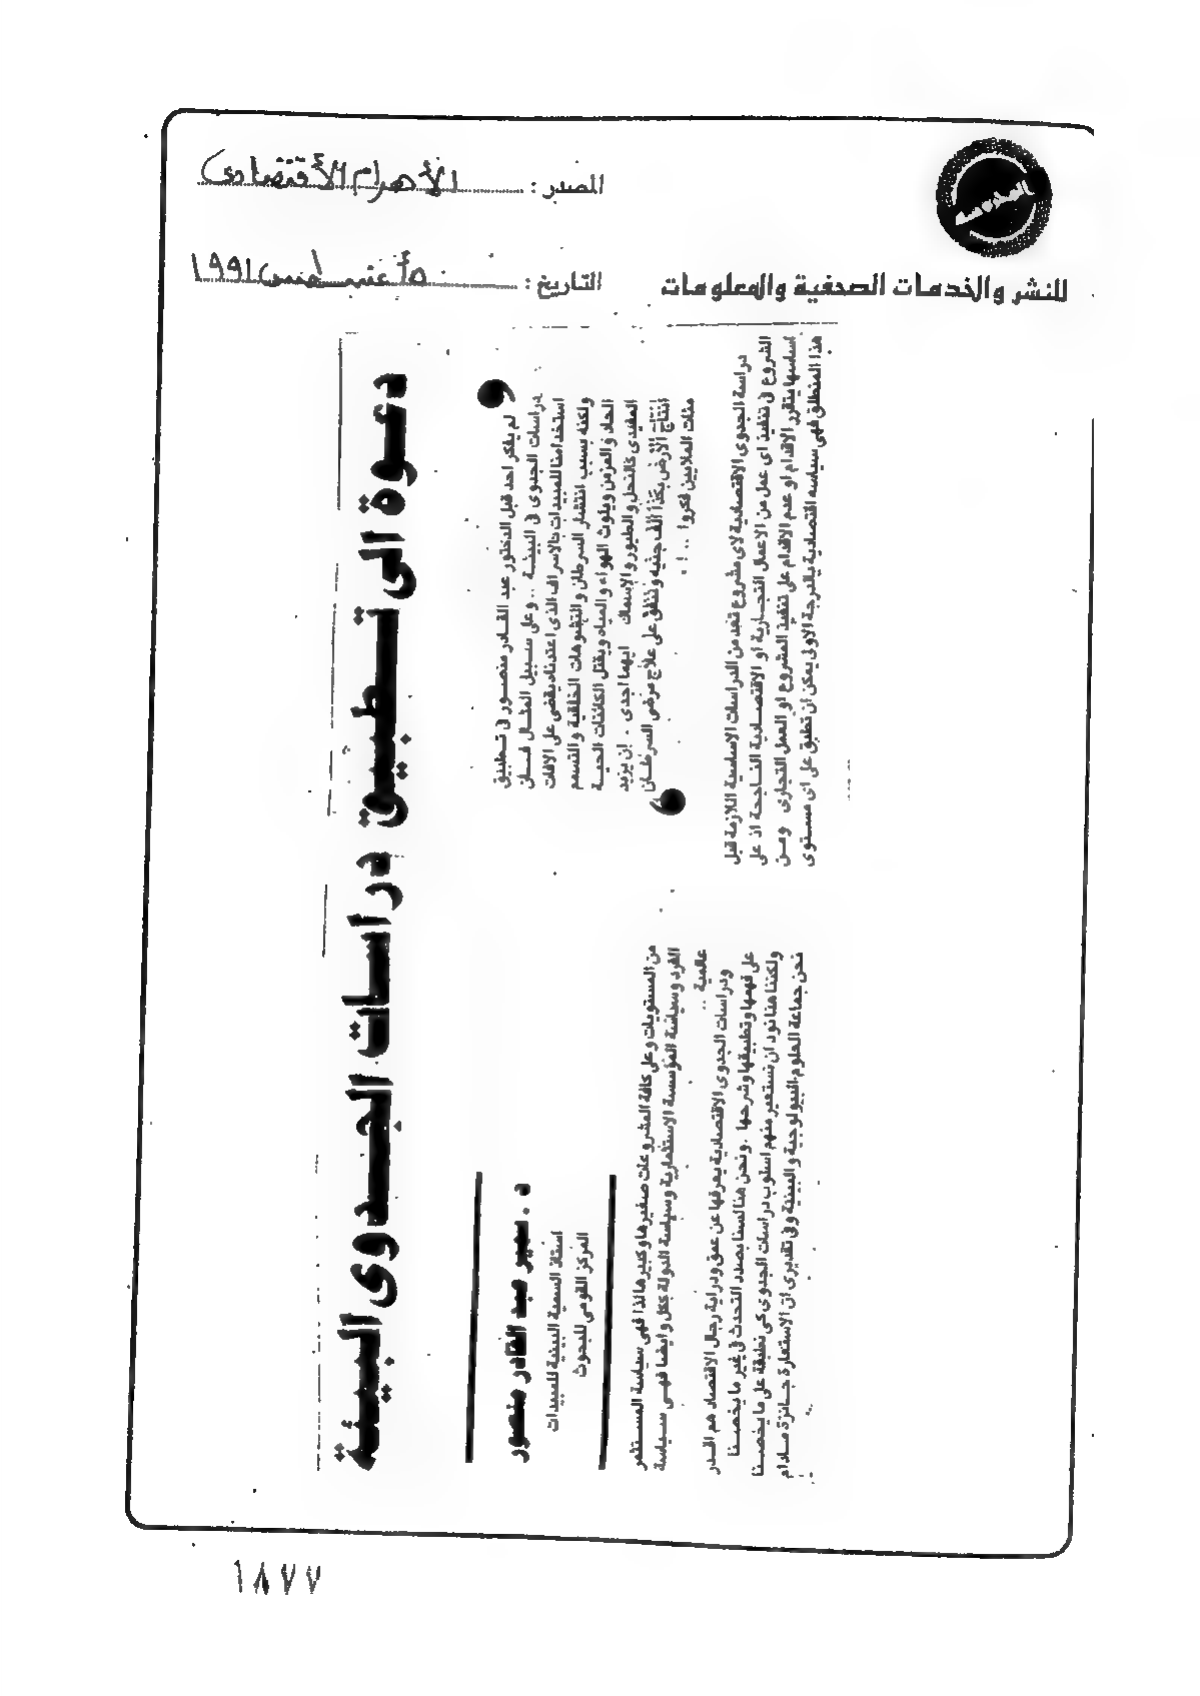 المصدر : الأهرام الأقتصادى
التاريخ : ٥ أغسطس ١٩٩١
للنشر والخدمات الصحفية والمعلومات
دعوة الى تطبيق دراسات الجدوى البيئية
لم يفكر احد قبل الدكتور عبد القادر منصور فى تطبيق
دراسات الجدوى فى البيئة .. وعلى سبيل المثال فان
استخدامنا للمبيدات بالاسراف الذى اعتدناه يقضى على الافات
ولكنه يسبب انتشار السرطان والتشوهات الخلقية والتسمم
الحاد والمزمن ويلوث الهواء والمياه ويقتل الكائنات الحية
المفيدى كالنحل والطيور والاسماك ايهما اجدى - ان يزيد
انتاج الأرض بكذا الف جنيه وننفق على علاج مرضى السرطان
مئات الملايين فكروا .. ! .
د . سمير عبد القادر منصور
استاذ السمية البيئية للمبيدات
المركز القومى للبحوث
دراسة الجدوى الاقتصادية لاى مشروع تجد من الدراسات الاساسية اللازمة قبل
الشروع فى تنفيذ اى عمل من الاعمال التجارية او الاقتصادية الناجحة اذ على
اساسها يتقرر الاقدام او عدم الاقدام على تنفيذ المشروع او العمل التجارى ومن
هذا المنطلق فهى سياسه اقتصادية بالدرجة الاولى يمكن ان تطبق على اى مستوى
من المستويات وعلى كافة المشروعات صغيرها وكبيرها لذا فهى سياسة المستثمر
الفرد وسياسة المؤسسة الاستثمارية وسياسة الدولة ككل وايضا فهى سياسة
عالمية ..
ودراسات الجدوى الاقتصادية يعرفها عن عمق ودراية رجال الاقتصاد هم اقدر
على فهمها وتطبيقها وشرحها . ونحن هنا لسنا بصدد التحدث فى غير ما يخصنا
ولكننا هنا نود ان نستعير منهم اسلوب دراسات الجدوى كى نطبقة على ما يخصنا
نحن جماعة العلوم البيولوجية والبيئية وفى تقديرى ان الاستعارة جائزة مادام
١٨٧٧